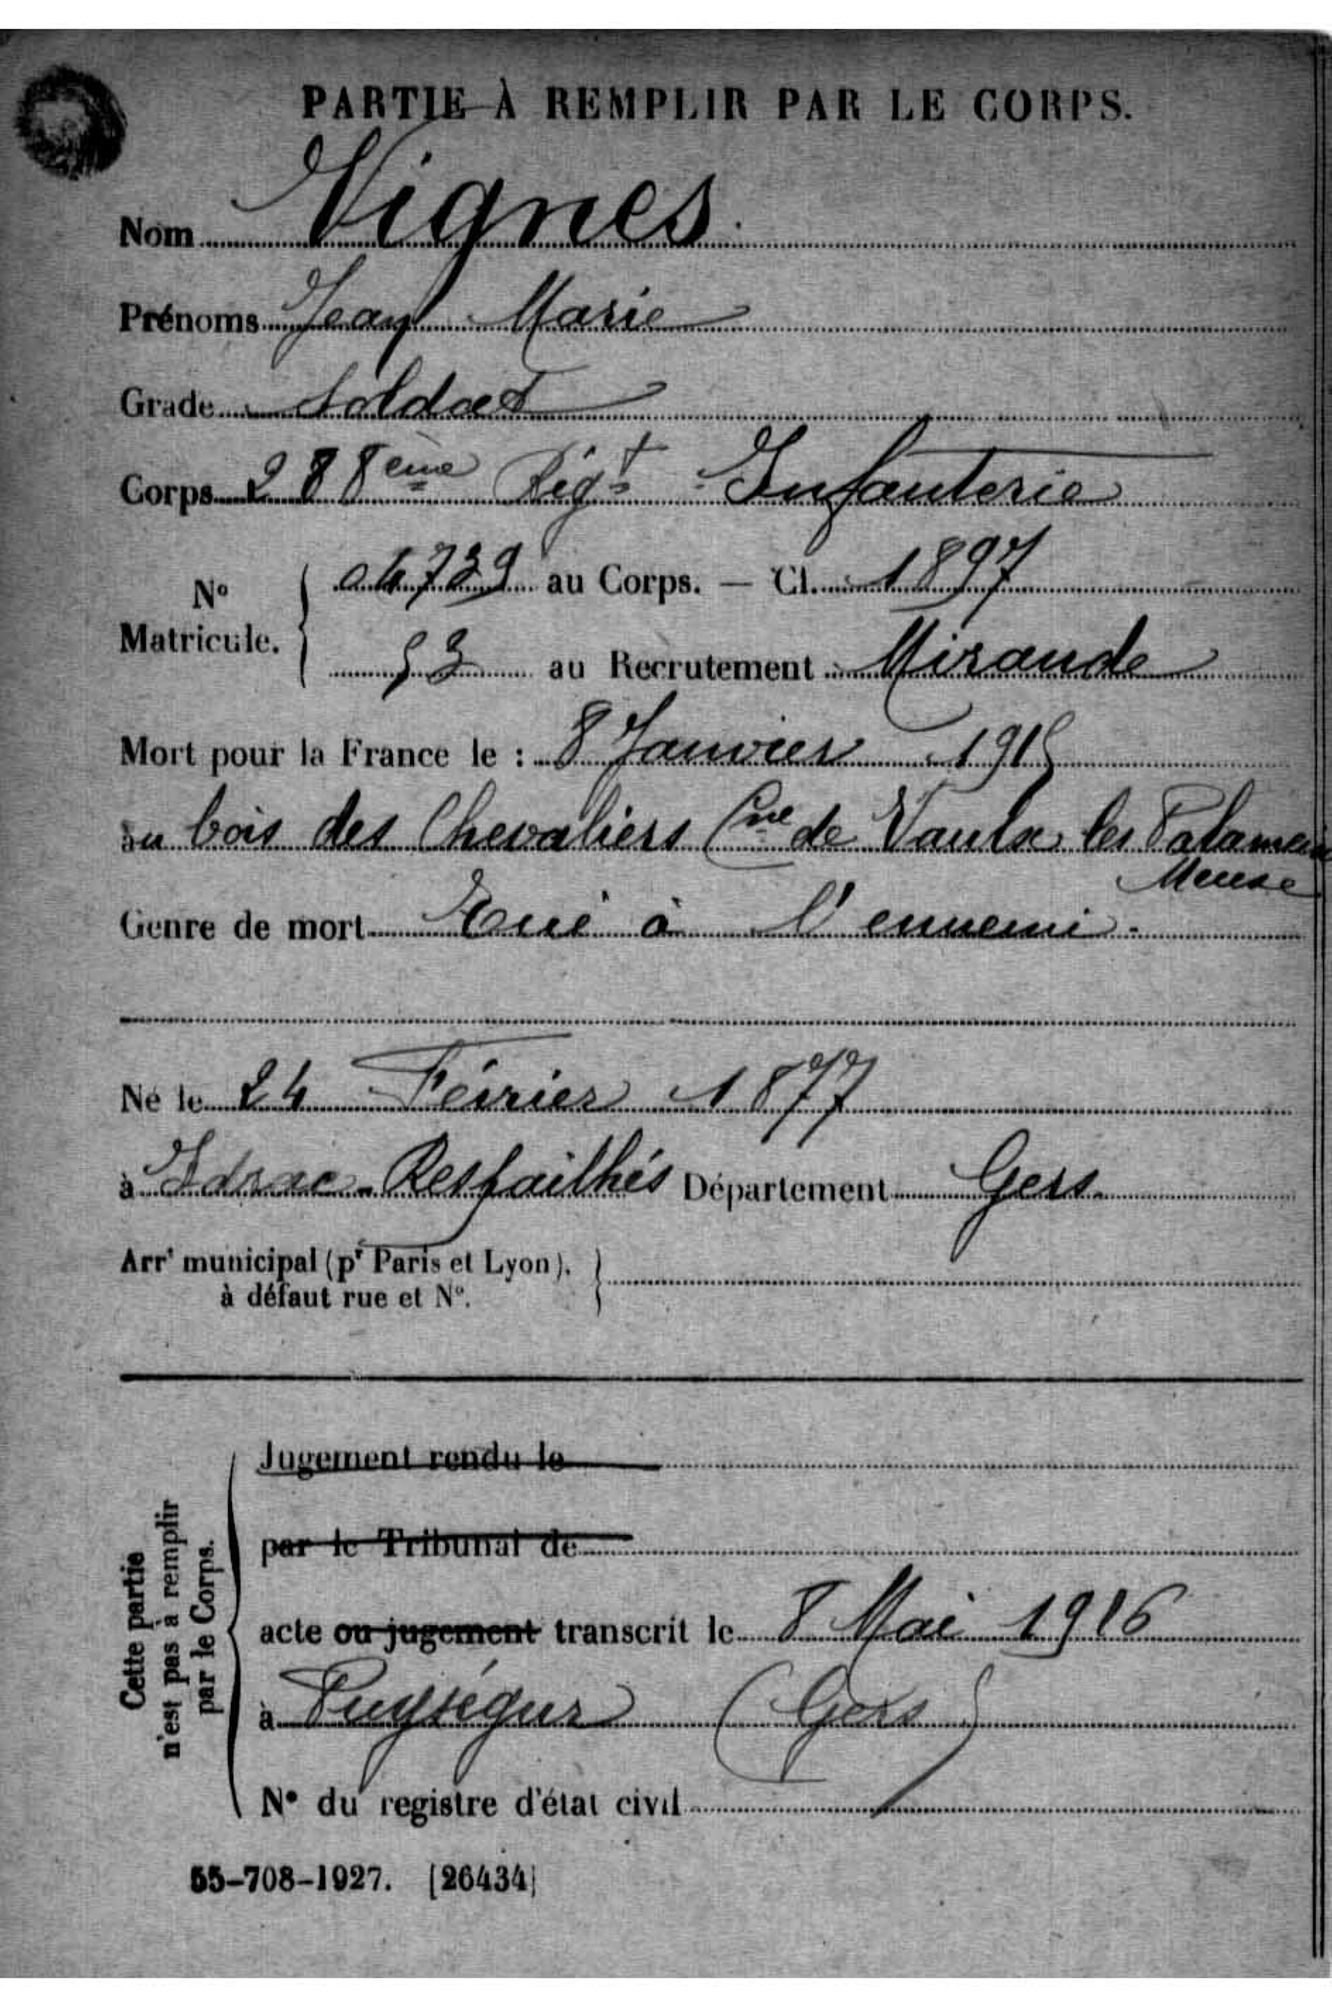 PARTIE À REMPLIR PAR LE CORPS.
Nom Vignes
Prénoms Jean Marie
Grade Soldat
Corps 288ème Régt Infanterie
No Matricule. 04739 au Corps. — Cl. 1897
53 au Recrutement Mirande
Mort pour la France le : 8 Janvier 1915
au bois des Chevaliers Cne de Vaulx les Palameix
Meuse
Genre de mort Tué à l'ennemi.
Né le 24 Février 1877
à Idrac-Respailhés Département Gers
Arrt municipal (pr Paris et Lyon),
à défaut rue et No.
Cette partie
n'est pas à remplir
par le Corps.
Jugement rendu le
par le Tribunal de
acte ou jugement transcrit le 8 Mai 1916
à Puységur (Gers)
No du registre d'état civil
55-708-1927. [26434]